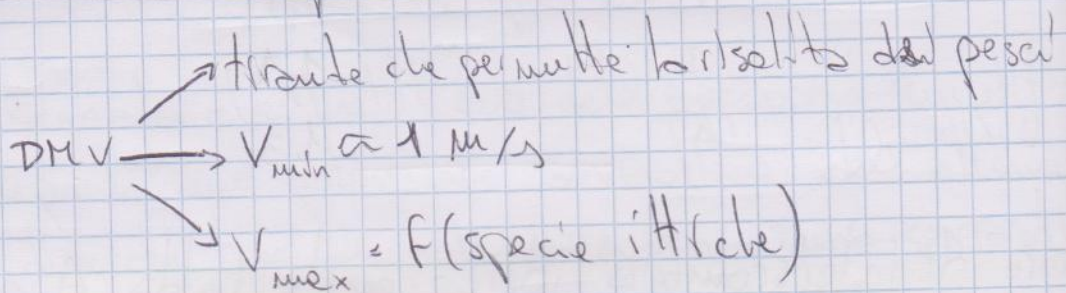 tirante che permette la risalita dei pesci
DMV V_min ≃ 1 m/s
V_max = f(specie ittiche)